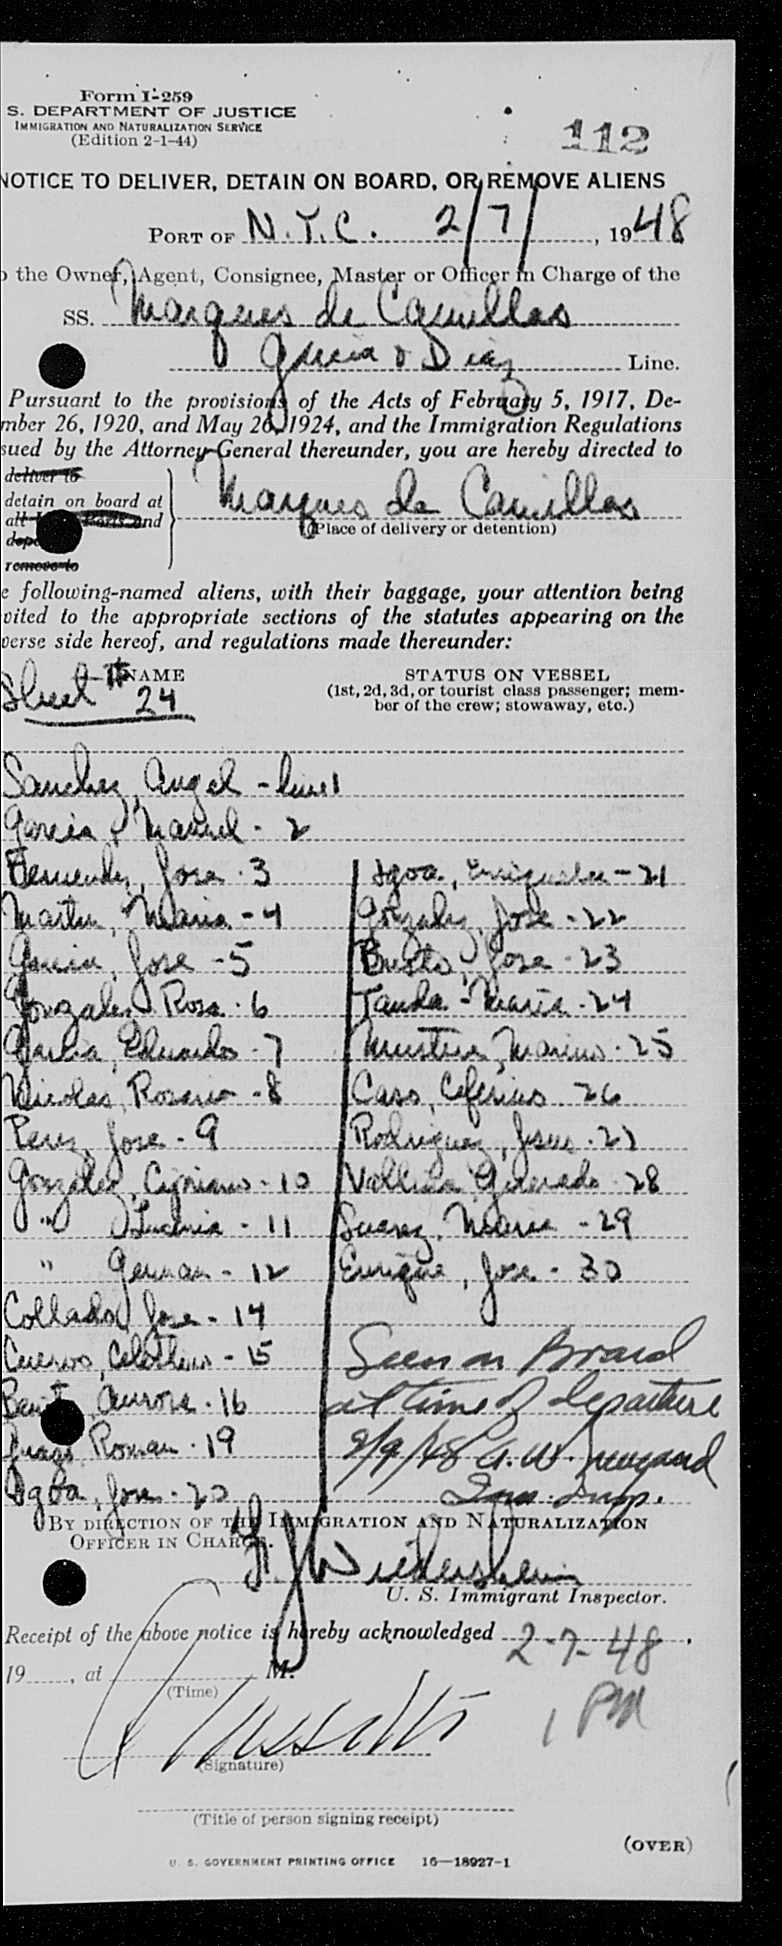 Form I-259
S. DEPARTMENT OF JUSTICE
IMMIGRATION AND NATURALIZATION SERVICE
(Edition 2-1-44)
112
NOTICE TO DELIVER, DETAIN ON BOARD, OR REMOVE ALIENS
PORT OF N.Y.C. 2/7/, 1948
o the Owner, Agent, Consignee, Master or Officer in Charge of the
SS. Marques de Camillas
Garcia & Diaz Line.
Pursuant to the provisions of the Acts of February 5, 1917, De-
mber 26, 1920, and May 26, 1924, and the Immigration Regulations
sued by the Attorney General thereunder, you are hereby directed to
deliver to
detain on board at
all and
remove to
Marques de Camillas
(Place of delivery or detention)
e following-named aliens, with their baggage, your attention being
vited to the appropriate sections of the statutes appearing on the
verse side hereof, and regulations made thereunder:
NAME
Sheet # 24
STATUS ON VESSEL
(1st, 2d, 3d, or tourist class passenger; mem-
ber of the crew; stowaway, etc.)
Sanchez, Angel - line 1
Garcia, Manuel - 2
Jose - 3
Martin, Maria - 4
Garcia, Jose - 5
Gonzalez, Rosa - 6
Eduardo - 7
Nicolas, Rosario - 8
Perez, Jose - 9
Gonzalez, Cipriano - 10
" - 11
" German - 12
Collado, Jose - 14
Cuervo, - 15
Aurora - 16
Roman - 19
Jose - 20
- 21
Gonzalez, Jose - 22
Busto, Jose - 23
Maria - 24
- 25
Caso, Ceferino - 26
Rodriguez, Jesus - 27
Vallina - 28
Suarez, Maria - 29
Enrique, Jose - 30
Seen on Board
at time of departure
2/9/48 A. W.
Imm. Insp.
BY DIRECTION OF THE IMMIGRATION AND NATURALIZATION
OFFICER IN CHARGE.
U. S. Immigrant Inspector.
Receipt of the above notice is hereby acknowledged 2-7-48,
19, at M.
(Time)
1 PM
(Signature)
(Title of person signing receipt)
(OVER)
U. S. GOVERNMENT PRINTING OFFICE 16—18927-1